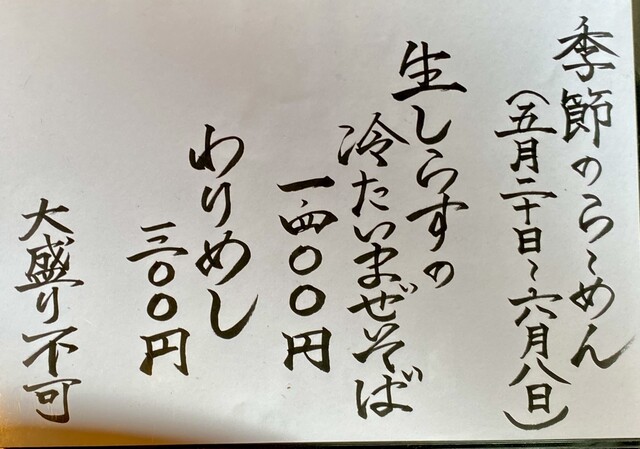 季節のらーめん
（五月二十日〜六月八日）
生しらすの
冷たいまぜそば
一四〇〇円
わりめし
三〇〇円
大盛り不可